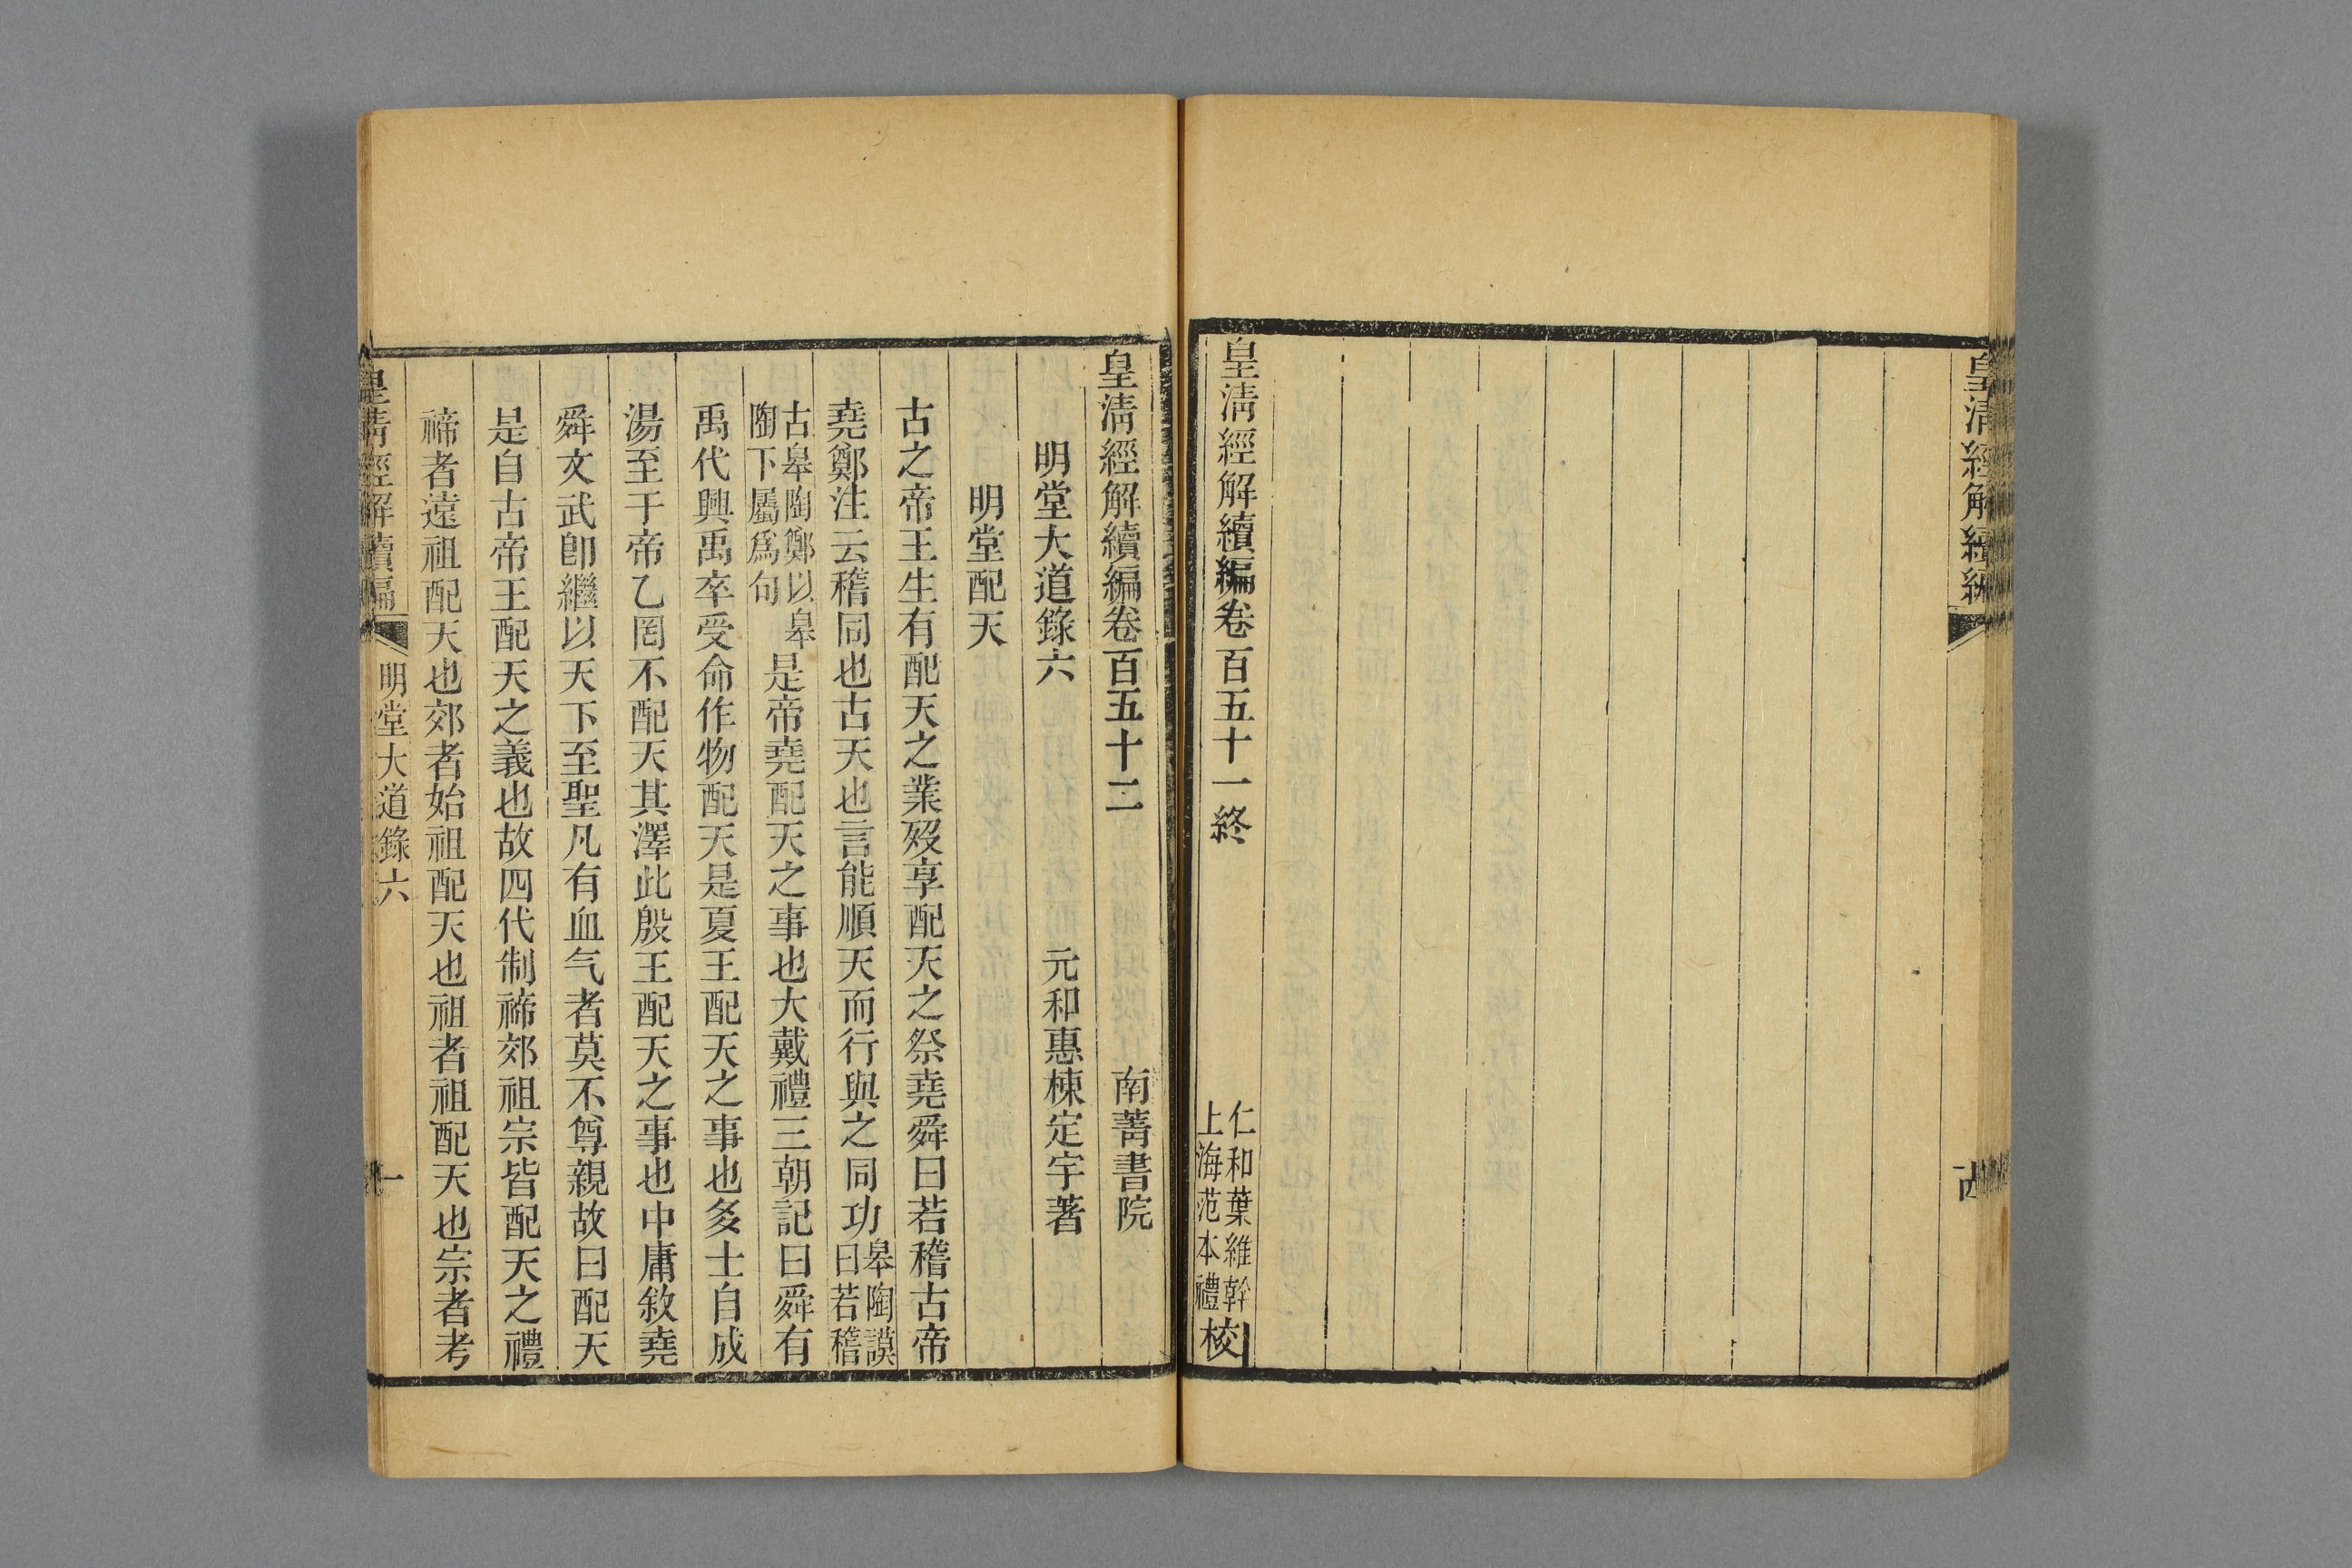 皇清經解續編
皇清經解續編卷百五十一終
仁和葉維幹
上海范本禮
校
皇清經解續編卷百五十二
南菁書院
明堂大道錄六
元和惠棟定宇著
明堂配天
古之帝王生有配天之業歿享配天之祭堯舜曰若稽古帝
堯鄭注云稽同也古天也言能順天而行與之同功皋陶謨曰若稽
古皋陶鄭以皋陶下屬爲句是帝堯配天之事也大戴禮三朝記曰舜有
禹代興禹卒受命作物配天是夏王配天之事也多士自成
湯至于帝乙罔不配天其澤此殷王配天之事也中庸敘堯
舜文武卽繼以天下至聖凡有血气者莫不尊親故曰配天
是自古帝王配天之義也故四代制禘郊祖宗皆配天之禮
禘者遠祖配天也郊者始祖配天也祖者祖配天也宗者考
皇清經解續編
明堂大道錄六
一